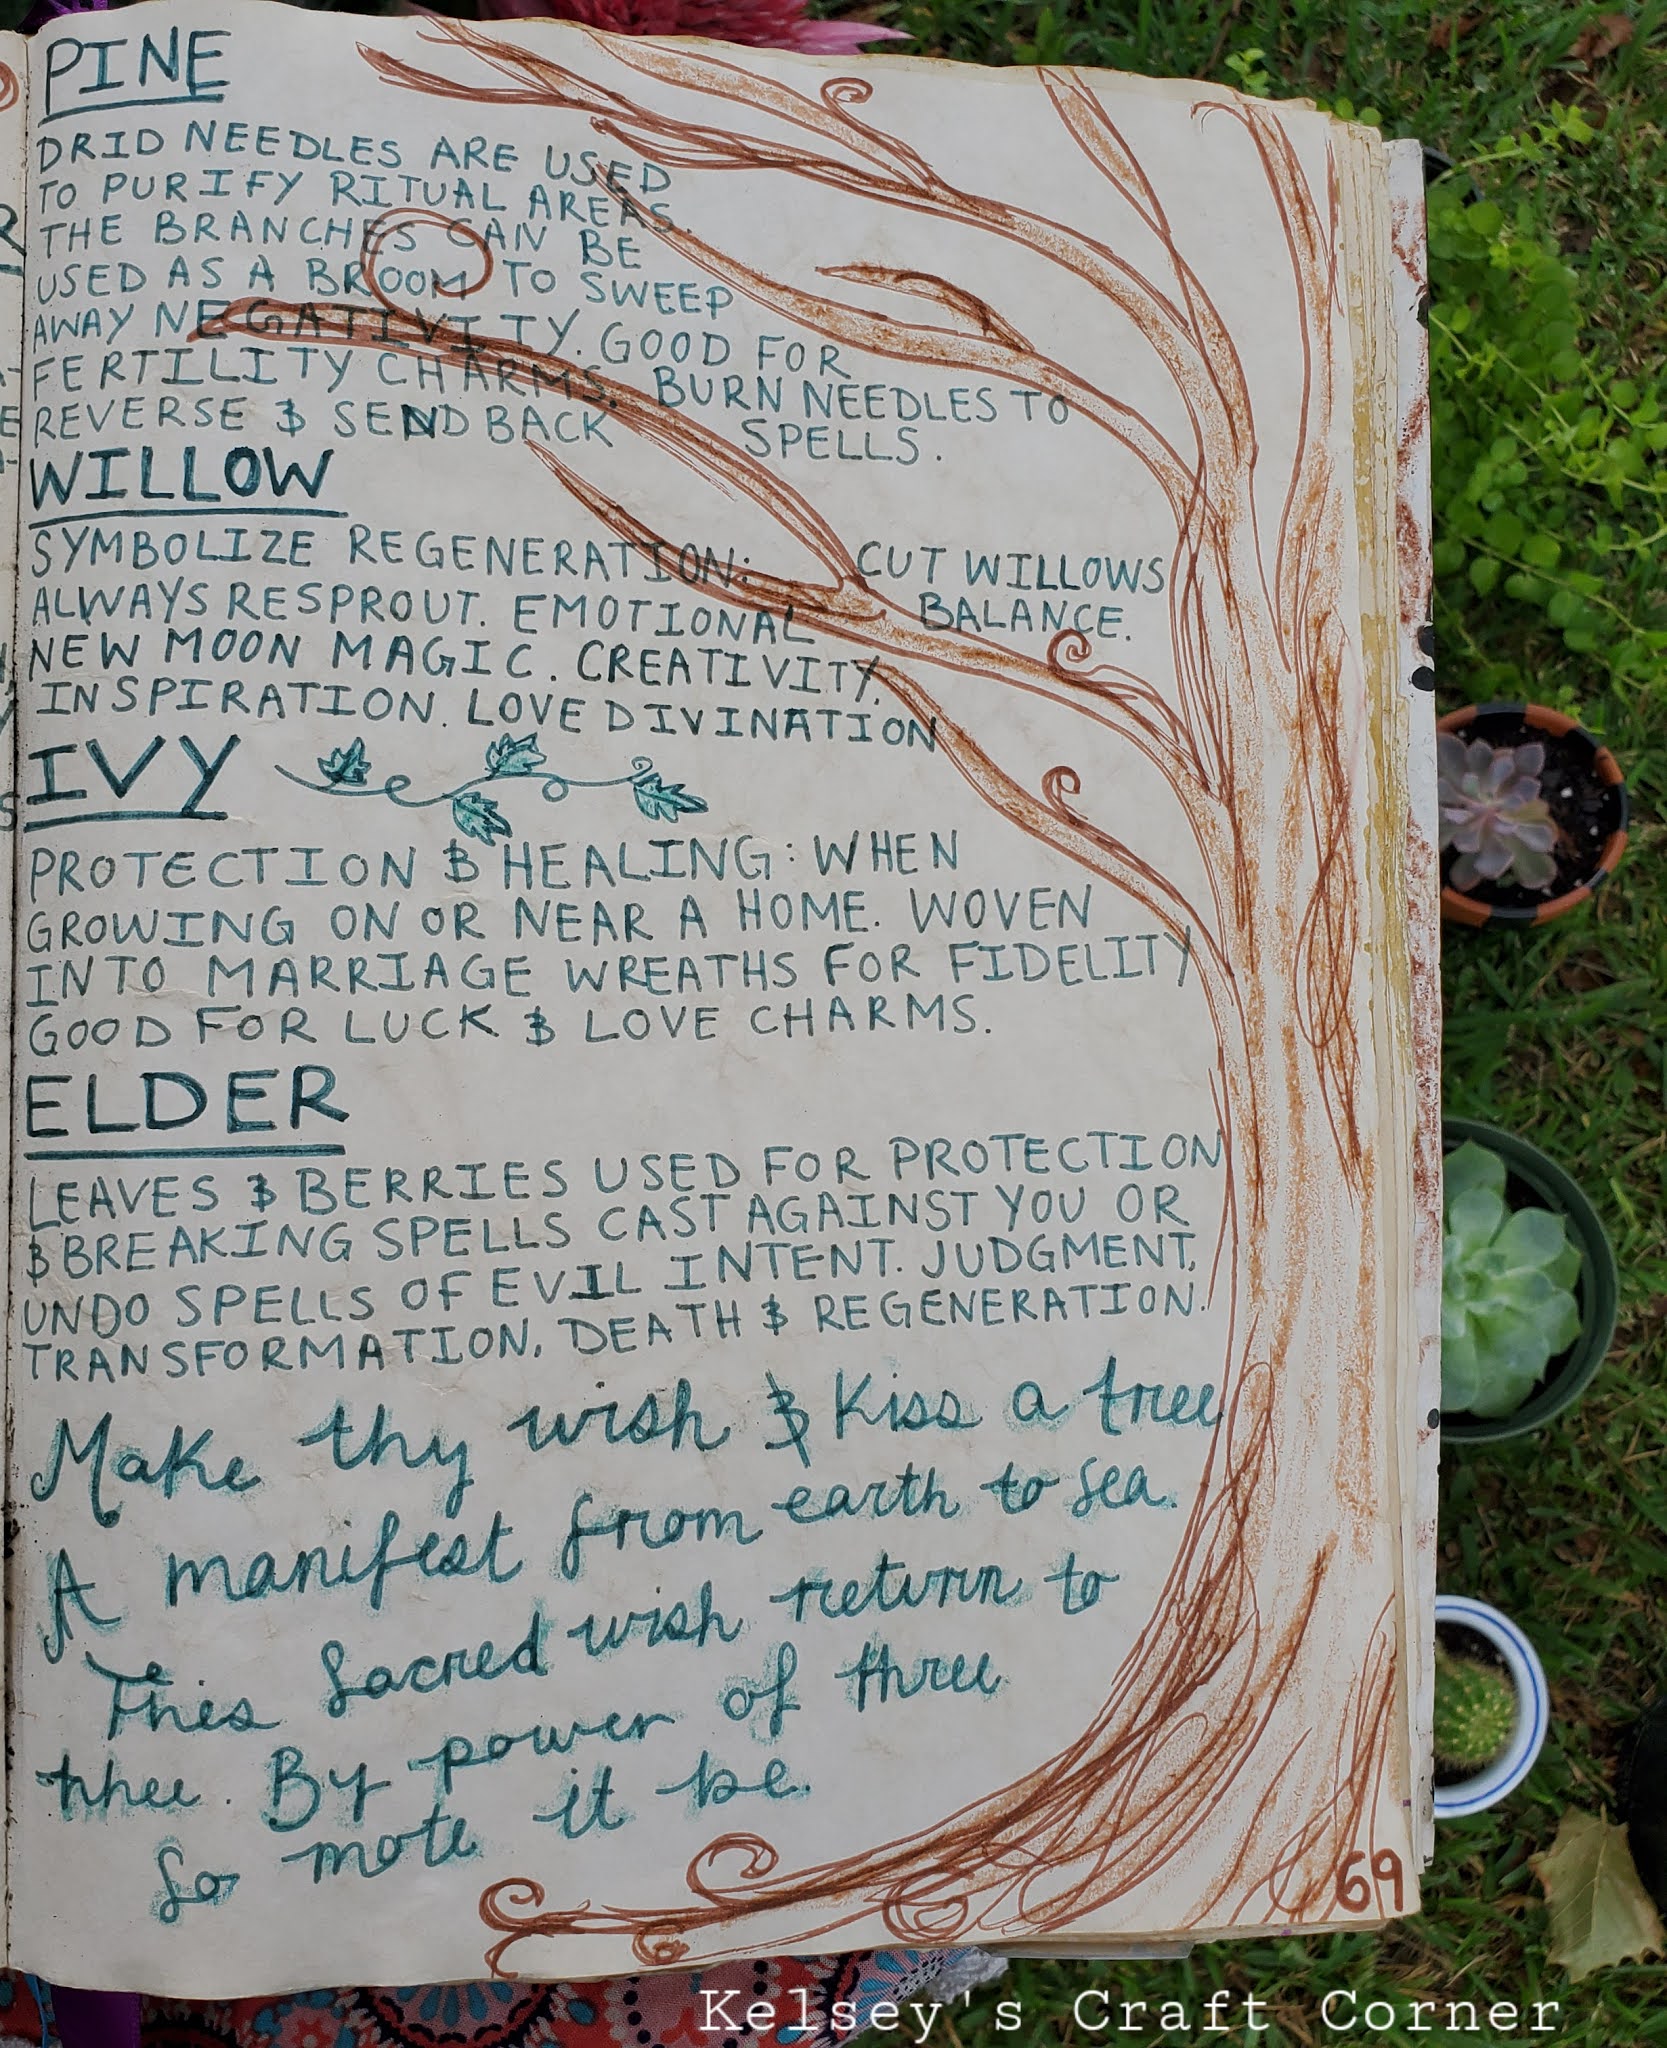 PINE
DRID NEEDLES ARE USED
TO PURIFY RITUAL AREAS.
THE BRANCHES CAN BE
USED AS A BROOM TO SWEEP
AWAY NEGATIVITY. GOOD FOR
FERTILITY CHARMS. BURN NEEDLES TO
REVERSE & SEND BACK SPELLS.
WILLOW
SYMBOLIZE REGENERATION: CUT WILLOWS
ALWAYS RESPROUT. EMOTIONAL BALANCE.
NEW MOON MAGIC. CREATIVITY,
INSPIRATION. LOVE DIVINATION
IVY
PROTECTION & HEALING: WHEN
GROWING ON OR NEAR A HOME. WOVEN
INTO MARRIAGE WREATHS FOR FIDELITY
GOOD FOR LUCK & LOVE CHARMS.
ELDER
LEAVES & BERRIES USED FOR PROTECTION
& BREAKING SPELLS CAST AGAINST YOU OR
UNDO SPELLS OF EVIL INTENT. JUDGMENT,
TRANSFORMATION, DEATH & REGENERATION.
Make thy wish & Kiss a tree
A manifest from earth to sea.
This sacred wish return to
thee. By power of three
So mote it be.
69
Kelsey's Craft Corner